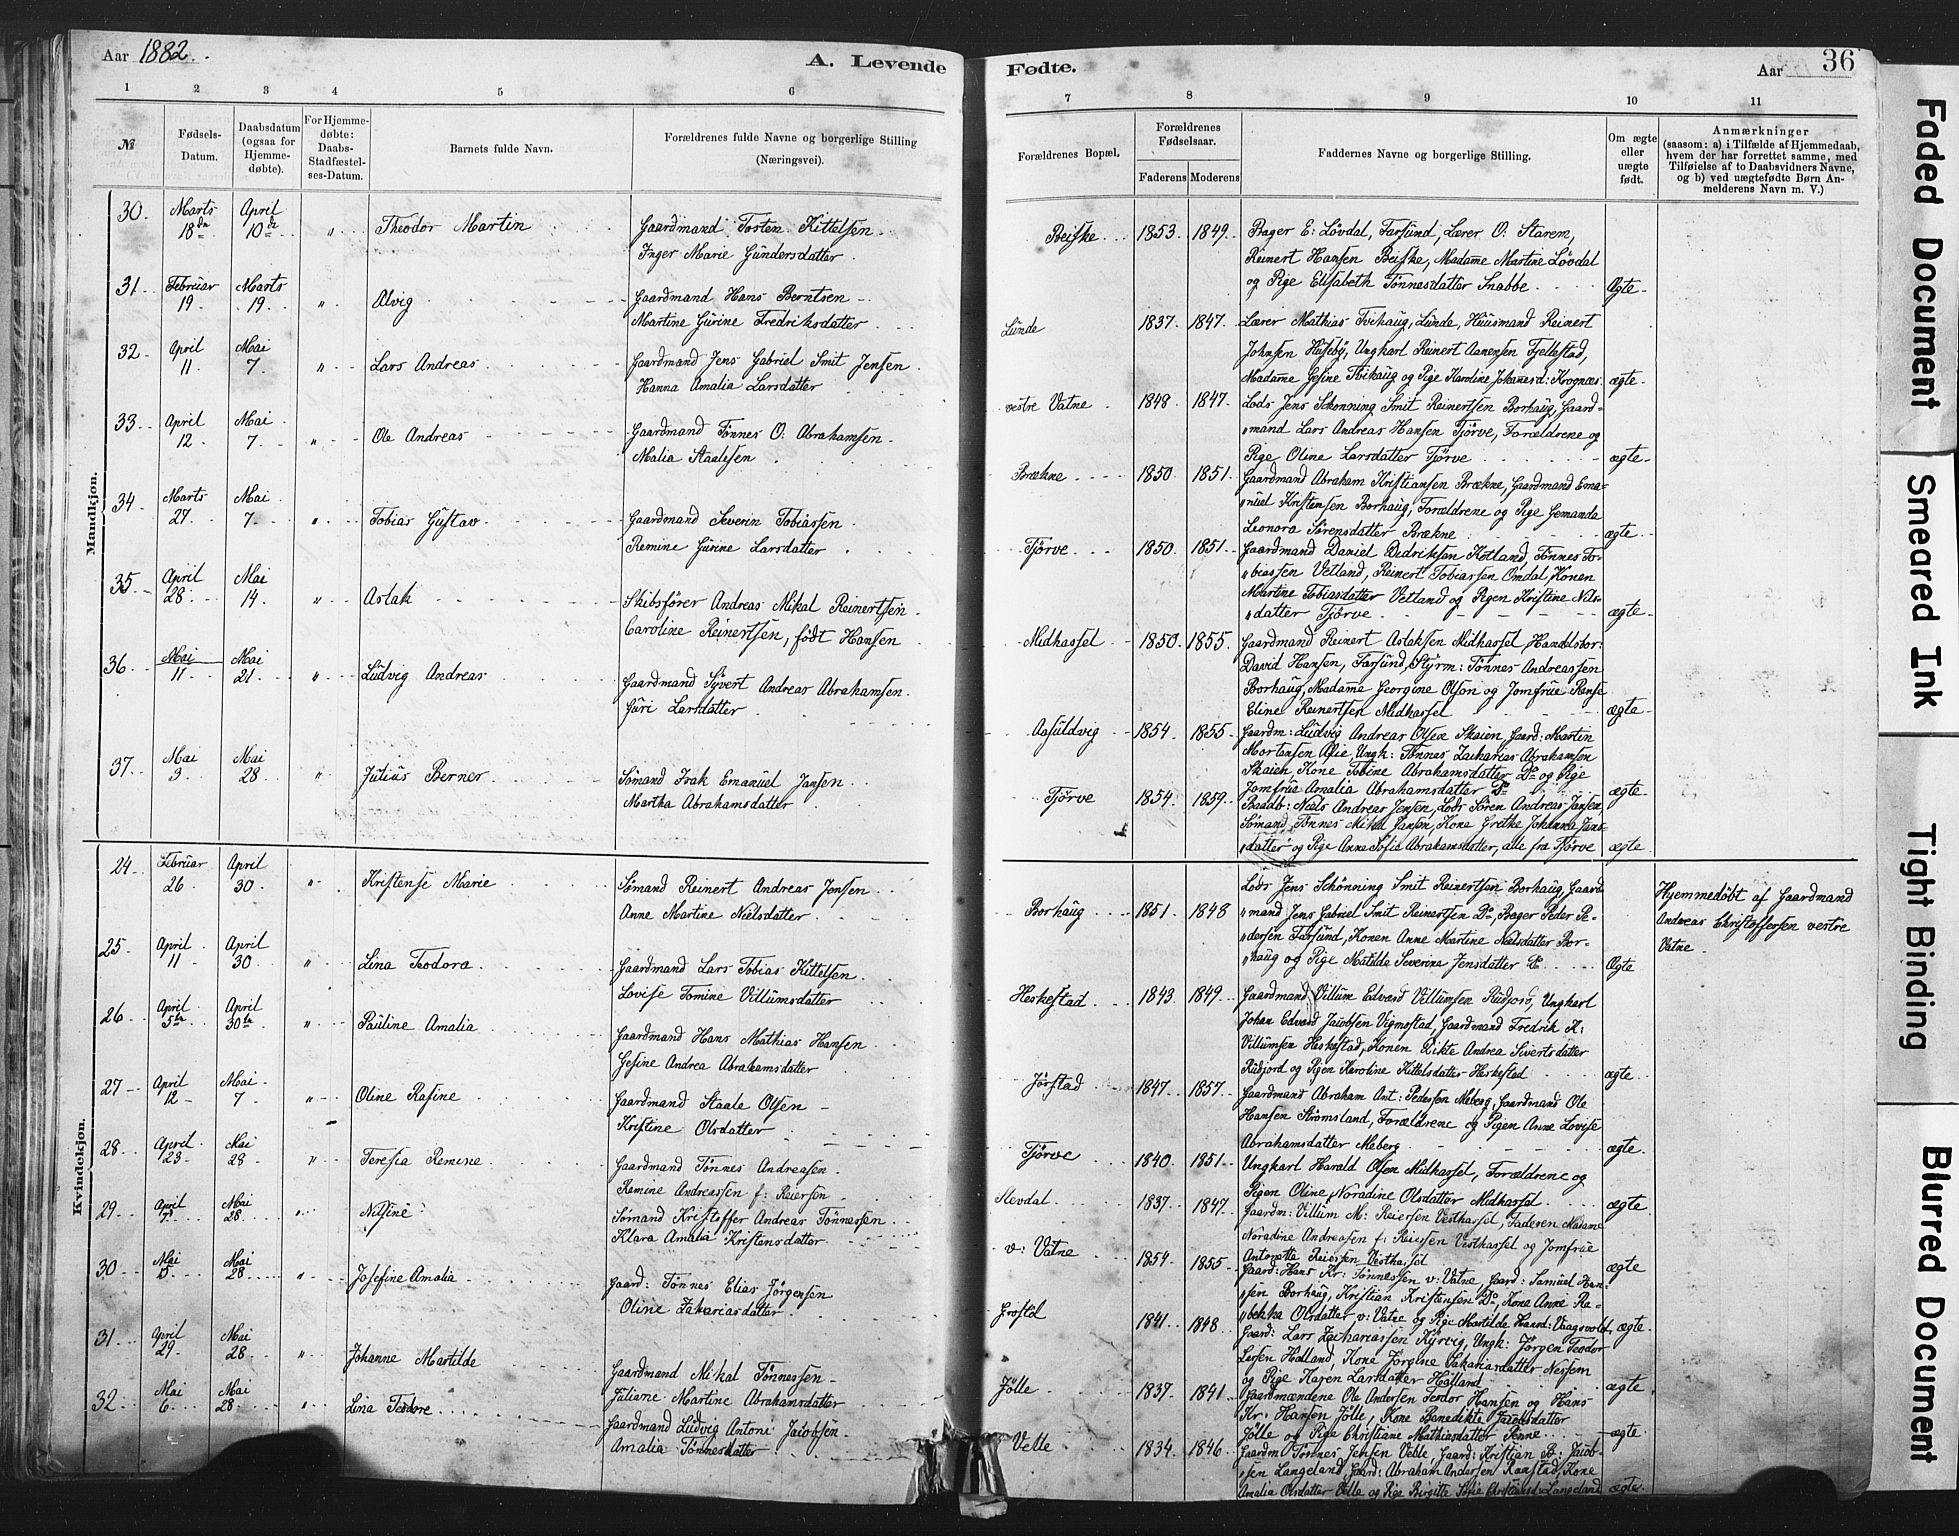 Aar 1882.
A. Levende
1 2 3 4 5 6
№
Fødsels-
Datum.
Daabsdatum
(ogsaa for
Hjemme-
døbte).
For Hjemme-
døbte:
Daabs-
Stadfæstel-
ses-Datum.
Barnets fulde Navn.
Forældrenes fulde Navne og borgerlige Stilling
(Næringsvei).
Mandkjøn.
30. Marts 18de April 10de " Theodor Martin Gaardmand Tosten Kittelsen
Inger Marie Gundersdatter
31 Februar 19 Marts 19 " Alvig Gaardmand Hans Berntsen
Martine Gurine Fredriksdatter
32 April 11 Mai 7 " Lars Andreas Gaardmand Jens Gabriel Smit Jensen
Hanna Amalia Larsdatter
33 April 12 Mai 7 " Ole Andreas Gaardmand Tønnes O: Abrahamsen
Malia Staalesen
34 Marts 27 Mai 7 " Tobias Gustav Gaardmand Severin Tobiassen
Remine Gurine Larsdatter
35 April 28 Mai 14 " Aslak Skibsfører Andreas Mikal Reinertsen
Caroline Reinertsen, født Hansen
36 Mai 11 Mai 21 " Ludvig Andreas Gaardmand Syvert Andreas Abrahamsen
Guri Larsdatter
37 Mai 3 Mai 28 " Julius Berner Sømand Isak Emanuel Jansen
Martha Abrahamsdatter
Kvindekjøn.
24 Februar 26 April 30 " Kristense Marie Sømand Reinert Andreas Jensen
Anne Martine Nielsdatter
25 April 11 April 30 " Lina Teodora Gaardmand Lars Tobias Kittelsen
Lovise Tomine Villumsdatter
26 April 5te April 30te " Pauline Amalia Gaardmand Hans Mathias Hansen
Gesine Andrea Abrahamsdatter
27 April 12 Mai 7 " Oline Rasine Gaardmand Staale Olsen
Kristine Olsdatter
28 April 23 Mai 28 " Teresia Remine Gaardmand Tønnes Andreasen
Remine Andreassen f: Reiersen
29 April 7 Mai 28 " Nilsine Sømand Kristoffer Andreas Tønnessen
Klara Amalia Kristensdatter
30 Mai 5 Mai 28 " Josefine Amalia Gaard: Tønnes Elias Jørgensen
Oline Zakariasdatter
31 April 29 Mai 28 " Johanne Martilde Gaardmand Mikal Tønnessen
Juliane Martine Abrahamsdatter
32 Mai 6 Mai 28 " Lina Tedore Gaardmand Ludvig Antoni Jacobsen
Amalia Tønnesdatter
Fødte.
Aar
36
7 8 9 10 11
Forældrenes Bopæl.
Forældrenes
Fødselsaar.
Faderens Moderens
Faddernes Navne og borgerlige Stilling.
Om ægte
eller
uægte
født.
Anmærkninger
(saasom: a) i Tilfælde af Hjemmedaab,
hvem der har forrettet samme, med
Tilføielse af to Daabsvidners Navne,
og b) ved uægtefødte Børn An-
melderens Navn m. V.)
Beiske 1853 1849 Bager E: Løvdal, Farsund, Lærer O: Starem,
Reinert Hansen Beiske, Madame Martine Løvdal
og Pige Elisabeth Tønnesdatter Snabbe Ægte
Lunde 1837 1847 Lærer Mathias Tvihaug, Lunde, Huusmand Reinert
Johnsen Huseby, Ungkarl Reinert Aanensen Fjellestad,
Madame Gesine Tvihaug og Pige Karoline Johanesd: Krognæs ægte
vestre Vatne 1848 1847 Lods Jens Schønning Smit Reinertsen Borhaug, Gaard-
"mand Lars Andreas Hansen Tjørve, Forældrene og
Pige Oline Larsdatter Tjørve ægte
Brækne 1850 1851 Gaardmand Abraham Kristiansen Brækne, Gaardmand Ema-
"nuel Kristensen Borhaug, Forældrene og Pige Gemanda
Leonora Sørensdatter Brækne ægte
Tjørve 1850 1851 Gaardmand Daniel Didriksen Hotland, Tønnes To-
"biassen Vetland, Reinert Tobiassen Omdal, Konen
Martine Tobiasdatter Vetland og Pigen Kristine Nils-
"datter Tjørve ægte
Midhassel 1850 1855 Gaardmand Reinert Aslaksen Midhassel, Handelsbor:
David Hansen, Farsund, Styrm: Tønnes Andreassen
Borhaug, Madame Georgine Olsen og Jomfrue
Eline Reinertsen Midhassel ægte
Aasuldvig 1854 1855 Gaardm: Ludvig Andreas Olsen Skaien, Gaard: Martin
Mortensen Ungk: Tønnes Zacharias Abrahamsen
Skaien, Kone Tobine Abrahamsdatter Do og Pige
Jomfrue Amalia Abrahamsdatter Do ægte
Tjørve 1854 1859 Baadb: Niels Andreas Jensen, Lods Søren Andreas Jansen,
Sømand Tønnes Mikal Jansen, Kone Grethe Johanna Jans-
"datter og Pige Anne Sofie Abrahamsdatter, alle fra Tjørve ægte
Borhaug 1851 1848 Lods Jens Schönning Smit Reinertsen Borhaug, Gaard-
"mand Jens Gabriel Smit Reinertsen Do, Bager Peder Pe-
"dersen Farsund, Konen Anne Martine Nielsdatter Bor-
"haug og Pige Matilde Severine Jensdatter Do Ægte
Hjemmedøbt af Gaardmand
Andreas Christoffersen vestre
Vatne
Heskestad 1843 1849 Gaardmand Villum Edvard Villumsen Rudjord, Ungkarl
Johan Edvard Jacobsen Vigmostad, Gaardmand Fredrik K:
Villumsen Heskestad, Konen Rikte Andrea Sivertsdatter
Rudjord og Pigen Karoline Kittelsdatter Heskestad ægte
Jørstad 1847 1857 Gaardmand Abraham Ant: Pedersen Meberg, Gaardmand Ole
Hansen Strømsland, Forældrene og Pigen Anne Lovise
Abrahamsdatter Meberg ægte
Tjørve 1840 1851 Ungkarl Harald Olsen Midhassel, Forældrene og
Pigen Oline Noradine Olsdatter Midhassel ægte
Stevdal 1837 1847 Gaardm: Villum M: Reiersen Vesthassel, Faderen Madame
Noradine Andreasen f: Reiersen Vesthassel og Jomfrue
Antonette Reiersen Vesthassel ægte
v: Vatne 1854 1855 Gaard: Hans Kr: Tønnessen v: Vatne, Gaard: Samuel Han-
"sen Borhaug, Kristian Kristensen Do, Kone Anne Ra-
"bekka Olsdatter v: Vatne og Pige Martilde Haard: Vaagsvold ægte
Grostøl 1841 1848 Gaard: Lars Zachariassen Kjørvig, Ungk: Jørgen Teodor
Larsen Hølland, Kone Jørgine Sakariasdatter Nesjem
og Pige Karen Larsdatter Hølland ægte
Jølle 1837 1841 Gaardmændene Ole Andersen Teodor Hansen og Hans
Kr: Hansen Jølle, Kone Benedikte Jacobsdatter
Jølle og Pige Christiane Mathiasdatter Penne ægte
Velle 1834 1846 Gaardm Tønnes Jensen Velle, Gaard: Kristian B: Jacob-
"sen Langeland, Gaard: Abraham Andersen Ranstad, Kone
Amalia Olsdatter Velle og Pige Birgitte Sofie Langeland ægte
Faded Document
Smeared Ink
Tight Binding
Blurred Document